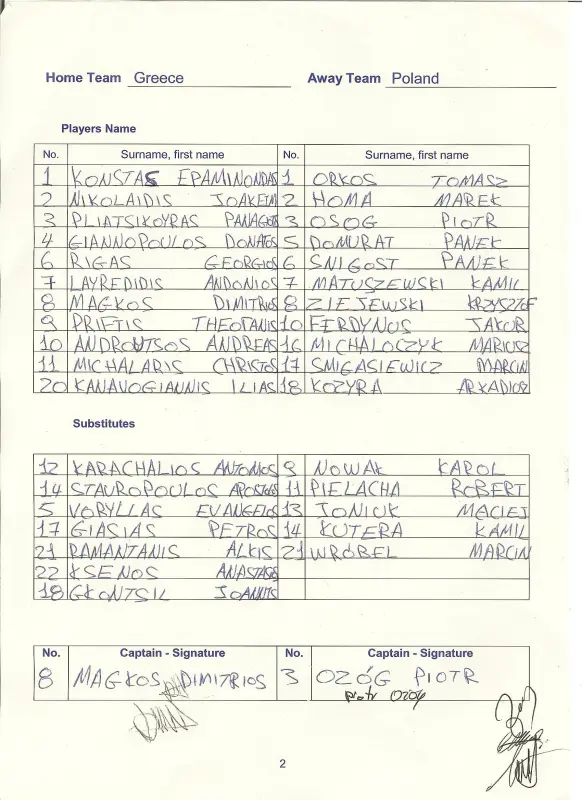 Home Team Greece Away Team Poland
Players Name
No. Surname, first name No. Surname, first name
1 KONSTAS EPAMINONDAS 1 ORKOS TOMASZ
2 NIKOLAIDIS IOAKEIM 2 HOMA MAREK
3 PLIATSIKOYRAS PANAGIOTIS 3 OSOG PIOTR
4 GIANNOPOULOS DONATOS 5 DOMURAT PANEK
6 RIGAS GEORGIOS 6 SNIGOST PANEK
7 LAYREDIDIS ANDONIOS 7 MATUSZEWSKI KAMIL
8 MAGKOS DIMITRIOS 8 ZIEJEWSKI KRZYSZTOF
9 PRIFTIS THEOFANIS 10 FERDYNUS JAKUB
10 ANDROUTSOS ANDREAS 16 MICHALOCZYK MARIUSZ
11 MICHALARIS CHRISTOS 17 SMIGASIEWICZ MARCIN
20 KANAVOGIANNIS ILIAS 18 KOZYRA ARKADIUSZ
Substitutes
12 KARACHALIOS ANTONIOS 9 NOWAK KAROL
14 STAUROPOULOS APOSTOLOS 11 PIELACHA ROBERT
5 VORYLLAS EVANGELOS 13 JONIUK MACIEJ
17 GIASIAS PETROS 14 KUTERA KAMIL
21 RAMANTANIS ALKIS 21 WRÓBEL MARCIN
22 KSENOS ANASTASIOS
18 GKONTSIL IOANNIS
No. Captain - Signature No. Captain - Signature
8 MAGKOS DIMITRIOS 3 OZÓG PIOTR
Piotr Ozóg
2